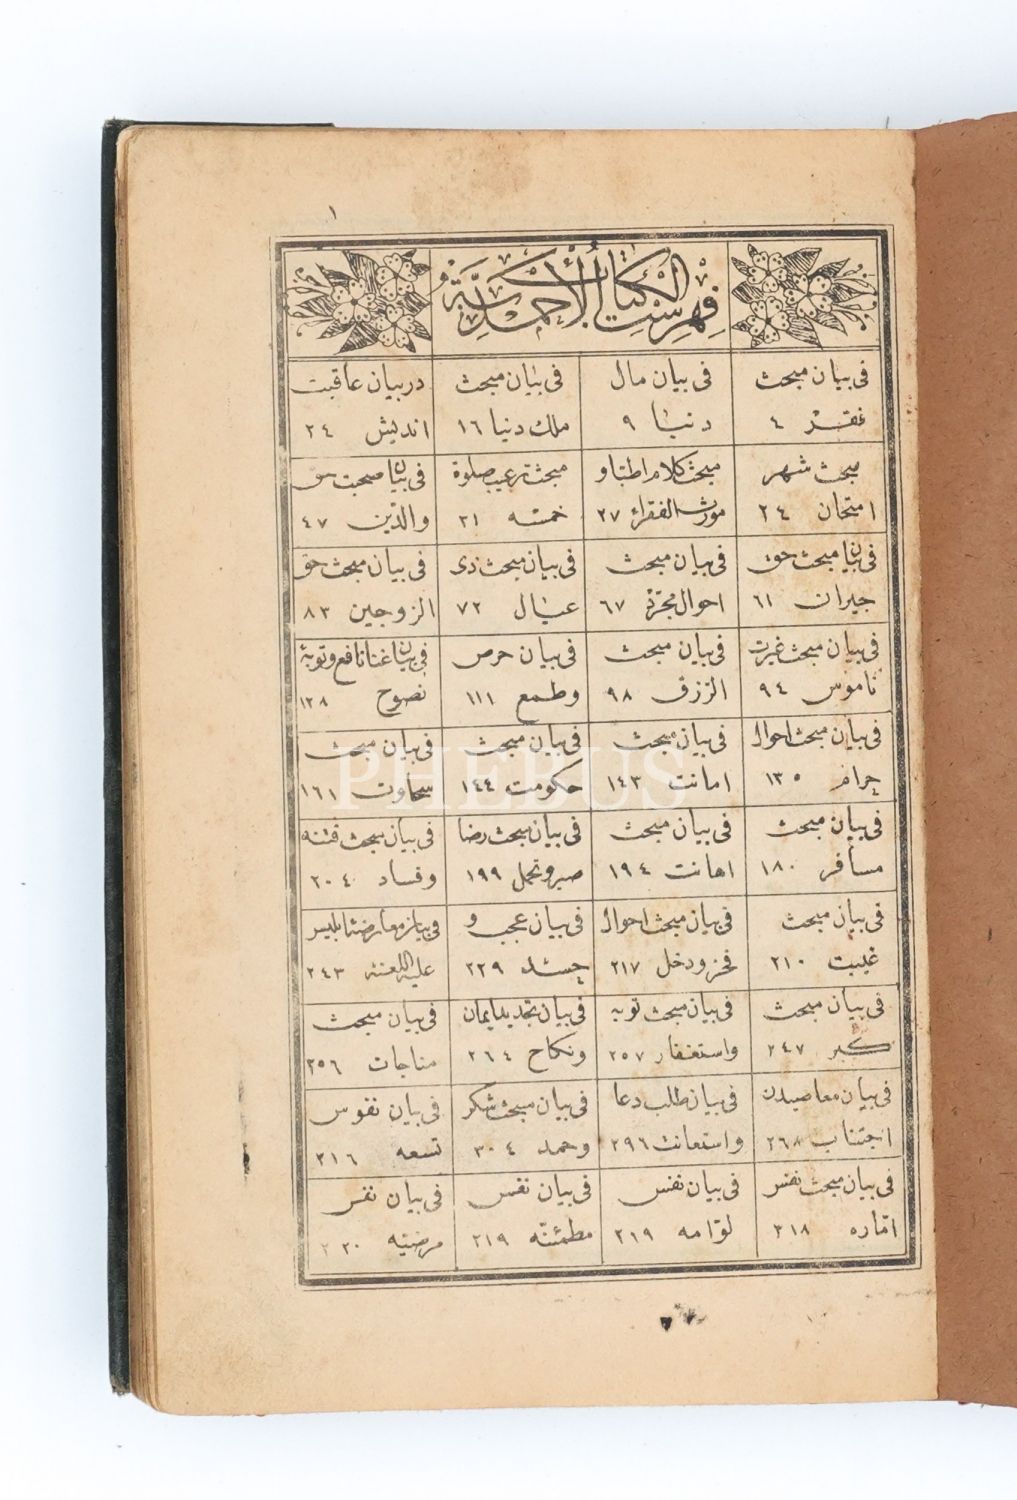 ١
فهرست الكتاب الأحمدية
في بيان مبحث
فقر ٤
في بيان مال
دنيا ٩
في بيان مبحث
ملك دنيا ١٦
در بيان عاقبت
انديش ٢٤
مبحث شهر
امتحان ٢٤
مبحث كلام اطبا و
مورث الفقراء ٢٧
مبحث ترغيب صلوة
خمسه ٣١
في بيان صحبت حق
والدين ٤٧
في بيان مبحث حق
جيران ٦١
في بيان مبحث
احوال مجرد ٦٧
في بيان مبحث ذى
عيال ٧٢
في بيان مبحث حق
الزوجين ٨٣
في بيان مبحث غيرت
ناموس ٩٤
في بيان مبحث
الرزق ٩٨
في بيان حرص
وطمع ١١١
في بيان غنا نافع وتوبة
نصوح ١٢٨
في بيان مبحث احوال
حرام ١٣٥
في بيان مبحث
امانت ١٤٣
في بيان مبحث
حكومت ١٤٤
في بيان مبحث
سخاوت ١٦١
في بيان مبحث
مسافر ١٨٠
في بيان مبحث
اهانت ١٩٤
في بيان مبحث رضا
صبر وتحمل ١٩٩
في بيان مبحث فتنه
وفساد ٢٠٤
في بيان مبحث
غيبت ٢١٠
في بيان مبحث احوال
فخر ودخل ٢١٧
في بيان عجب و
حسد ٢٢٩
في بيان معارضۀ ابليس
عليه اللعنة ٢٤٣
في بيان مبحث
كبر ٢٤٧
في بيان مبحث توبه
واستغفار ٢٥٧
في بيان تجديد ايمان
ونكاح ٢٦٤
في بيان مبحث
مناجات ٢٥٦
في بيان معاصيدن
اجتناب ٢٦٨
في بيان طلب دعا
واستعانت ٢٩٦
في بيان مبحث شكر
وحمد ٣٠٤
في بيان نفوس
تسعه ٣١٦
في بيان مبحث نفس
اماره ٣١٨
في بيان نفس
لوامه ٣١٩
في بيان نفس
مطمئنه ٣١٩
في بيان نفس
مرضيه ٣٢٠
PHEBUS